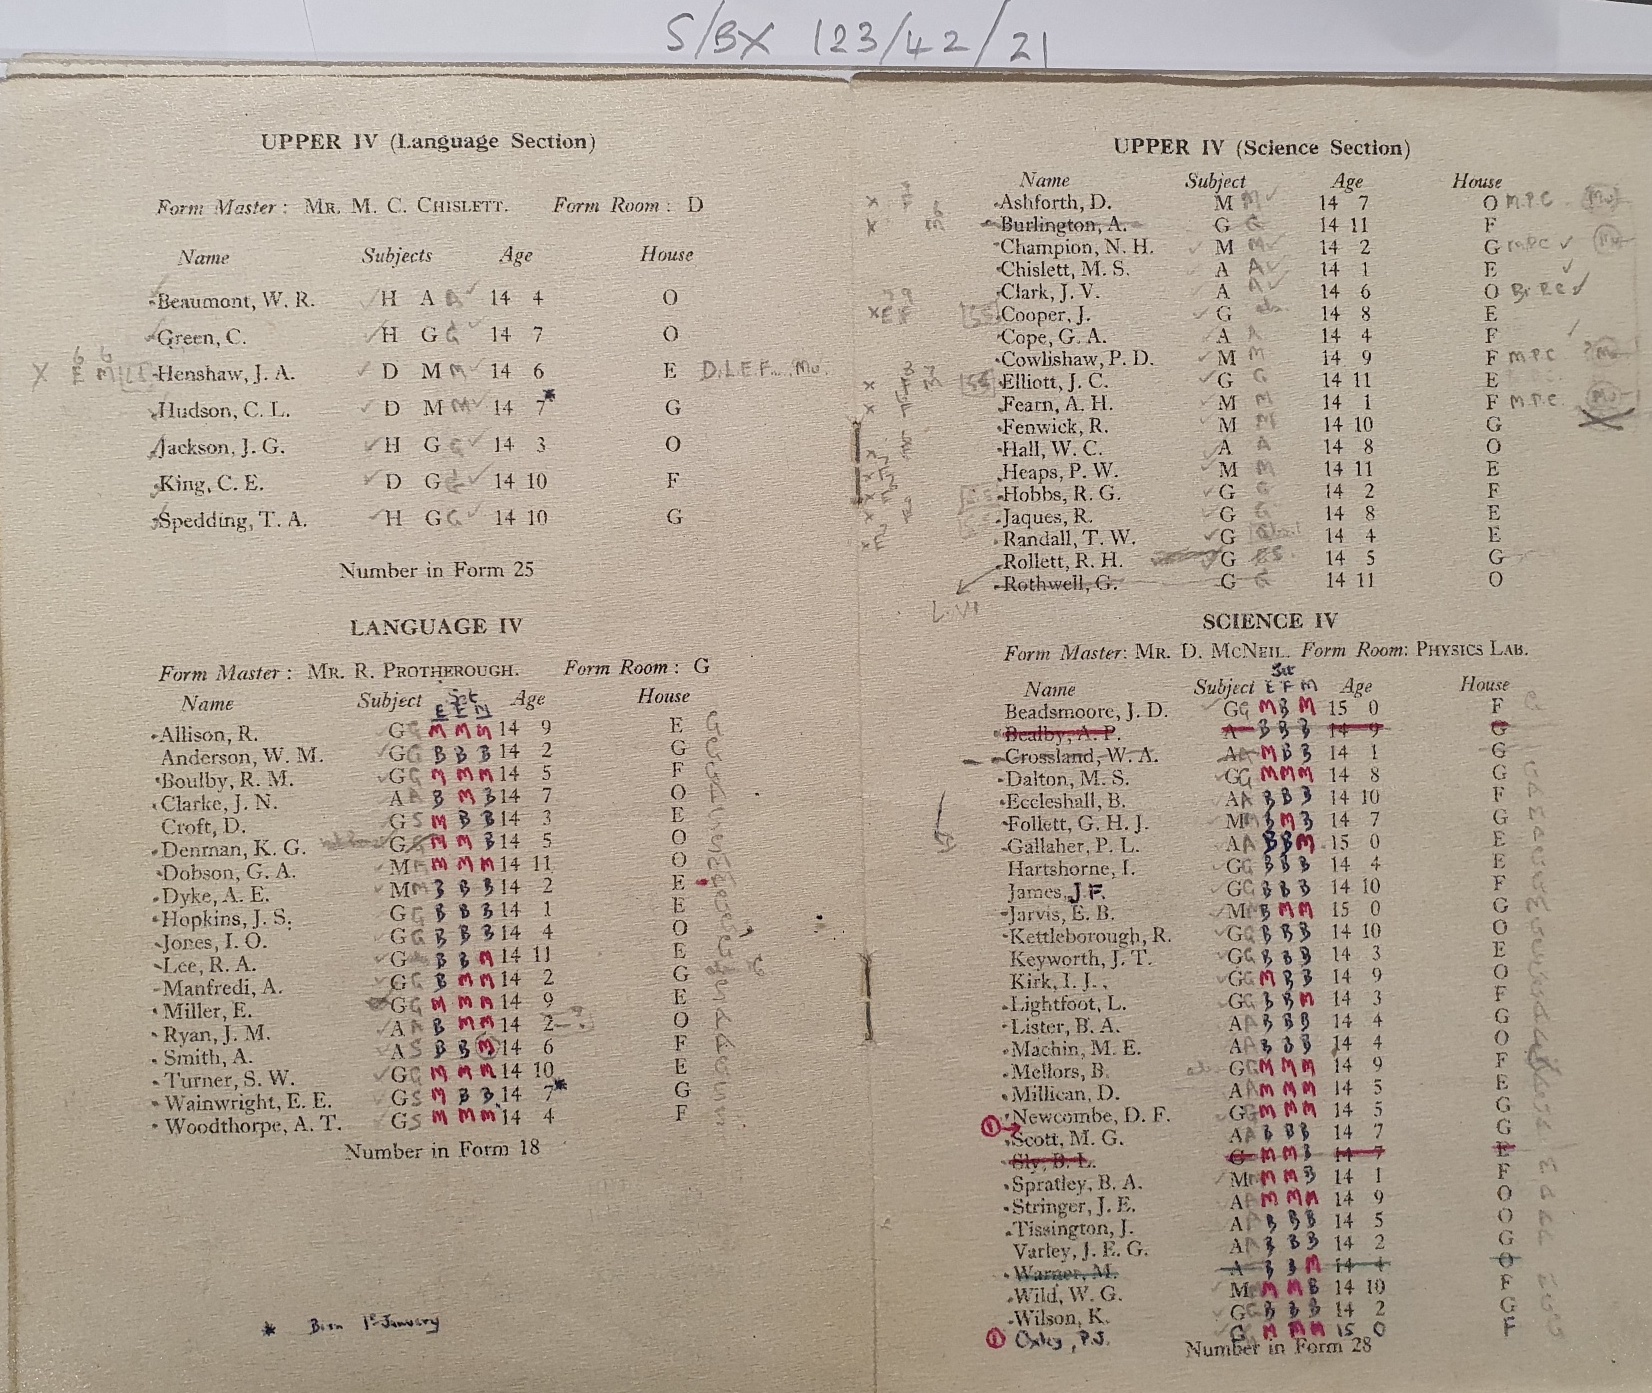 S/BX 123/42/21
UPPER IV (Language Section)
Form Master: MR. M. C. CHISLETT. Form Room: D
Name Subjects Age House
Beaumont, W. R. H A A 14 4 O
Green, C. H G G 14 7 O
X E M Henshaw, J. A. D M M 14 6 E D.L.E.F... Mu.
Hudson, C. L. D M M 14 7* G
Jackson, J. G. H G G 14 3 O
King, C. E. D G G 14 10 F
Spedding, T. A. H G G 14 10 G
Number in Form 25
LANGUAGE IV
Form Master: MR. R. PROTHEROUGH. Form Room: G
Set
Name Subject E F M Age House
Allison, R. G G M M M 14 9 E
Anderson, W. M. G G B B B 14 2 G
Boulby, R. M. G G M M M 14 5 F
Clarke, J. N. A A B M B 14 7 O
Croft, D. G S M B B 14 3 E
Denman, K. G. G M M B 14 5 O
Dobson, G. A. M M M M 14 11 O
Dyke, A. E. M M B B B 14 2 E
Hopkins, J. S. G G B B B 14 1 E
Jones, I. O. G G B B B 14 4 O
Lee, R. A. G B B M 14 11 E
Manfredi, A. G G B M M 14 2 G
Miller, E. G G M M M 14 9 E
Ryan, J. M. A A B M M 14 2 O
Smith, A. A S B B M 14 6 F
Turner, S. W. G G M M M 14 10 E
Wainwright, E. E. G S M B B 14 7* G
Woodthorpe, A. T. G S M M M 14 4 F
Number in Form 18
* Born 1st January
UPPER IV (Science Section)
Name Subject Age House
Ashforth, D. M M 14 7 O M.P.C Mu
Burlington, A. G G 14 11 F
Champion, N. H. M M 14 2 G M.P.C
Chislett, M. S. A A 14 1 E
Clark, J. V. A A 14 6 O Bi.P.C
Cooper, J. G 14 8 E
Cope, G. A. A A 14 4 F
Cowlishaw, P. D. M M 14 9 F M.P.C
Elliott, J. C. G G 14 11 E
Fearn, A. H. M M 14 1 F M.P.C.
Fenwick, R. M M 14 10 G
Hall, W. C. A A 14 8 O
Heaps, P. W. M M 14 11 E
Hobbs, R. G. G G 14 2 F
Jaques, R. G G 14 8 E
Randall, T. W. G 14 4 E
Rollett, R. H. G 14 5 G
Rothwell, G. G G 14 11 O
L.VI
SCIENCE IV
Form Master: MR. D. MCNEIL. Form Room: PHYSICS LAB.
Set
Name Subject E F M Age House
Beadsmoore, J. D. G G M B M 15 0 F
Bealby, A. P. A B B B 14 9 G
Crossland, W. A. A A M B B 14 1 G
Dalton, M. S. G G M M M 14 8 G
Eccleshall, B. A A B B B 14 10 F
Follett, G. H. J. M B M B 14 7 G
Gallaher, P. L. A A B B M 15 0 E
Hartshorne, I. G G B B B 14 4 E
James, J.F. G G B B B 14 10 F
Jarvis, E. B. M B M M 15 0 G
Kettleborough, R. G G B B B 14 10 O
Keyworth, J. T. G G B B B 14 3 E
Kirk, I. J. G G M B B 14 9 O
Lightfoot, L. G G B B M 14 3 F
Lister, B. A. A A B B B 14 4 G
Machin, M. E. A A B B B 14 4 O
Mellors, B. G G M M M 14 9 F
Millican, D. A A M M M 14 5 E
Newcombe, D. F. G G M M M 14 5 G
① Scott, M. G. A A B B B 14 7 G
Sly, B. L. G M M B 14 7 E
Spratley, B. A. M M M B 14 1 F
Stringer, J. E. A A M M M 14 9 O
Tissington, J. A A B B B 14 5 O
Varley, J. E. G. A A B B B 14 2 G
Warner, M. A B B M 14 4 O
Wild, W. G. M M M B 14 10 F
Wilson, K. G G B B B 14 2 G
① Oxley, P.J. G M M M 15 0 F
Number in Form 28